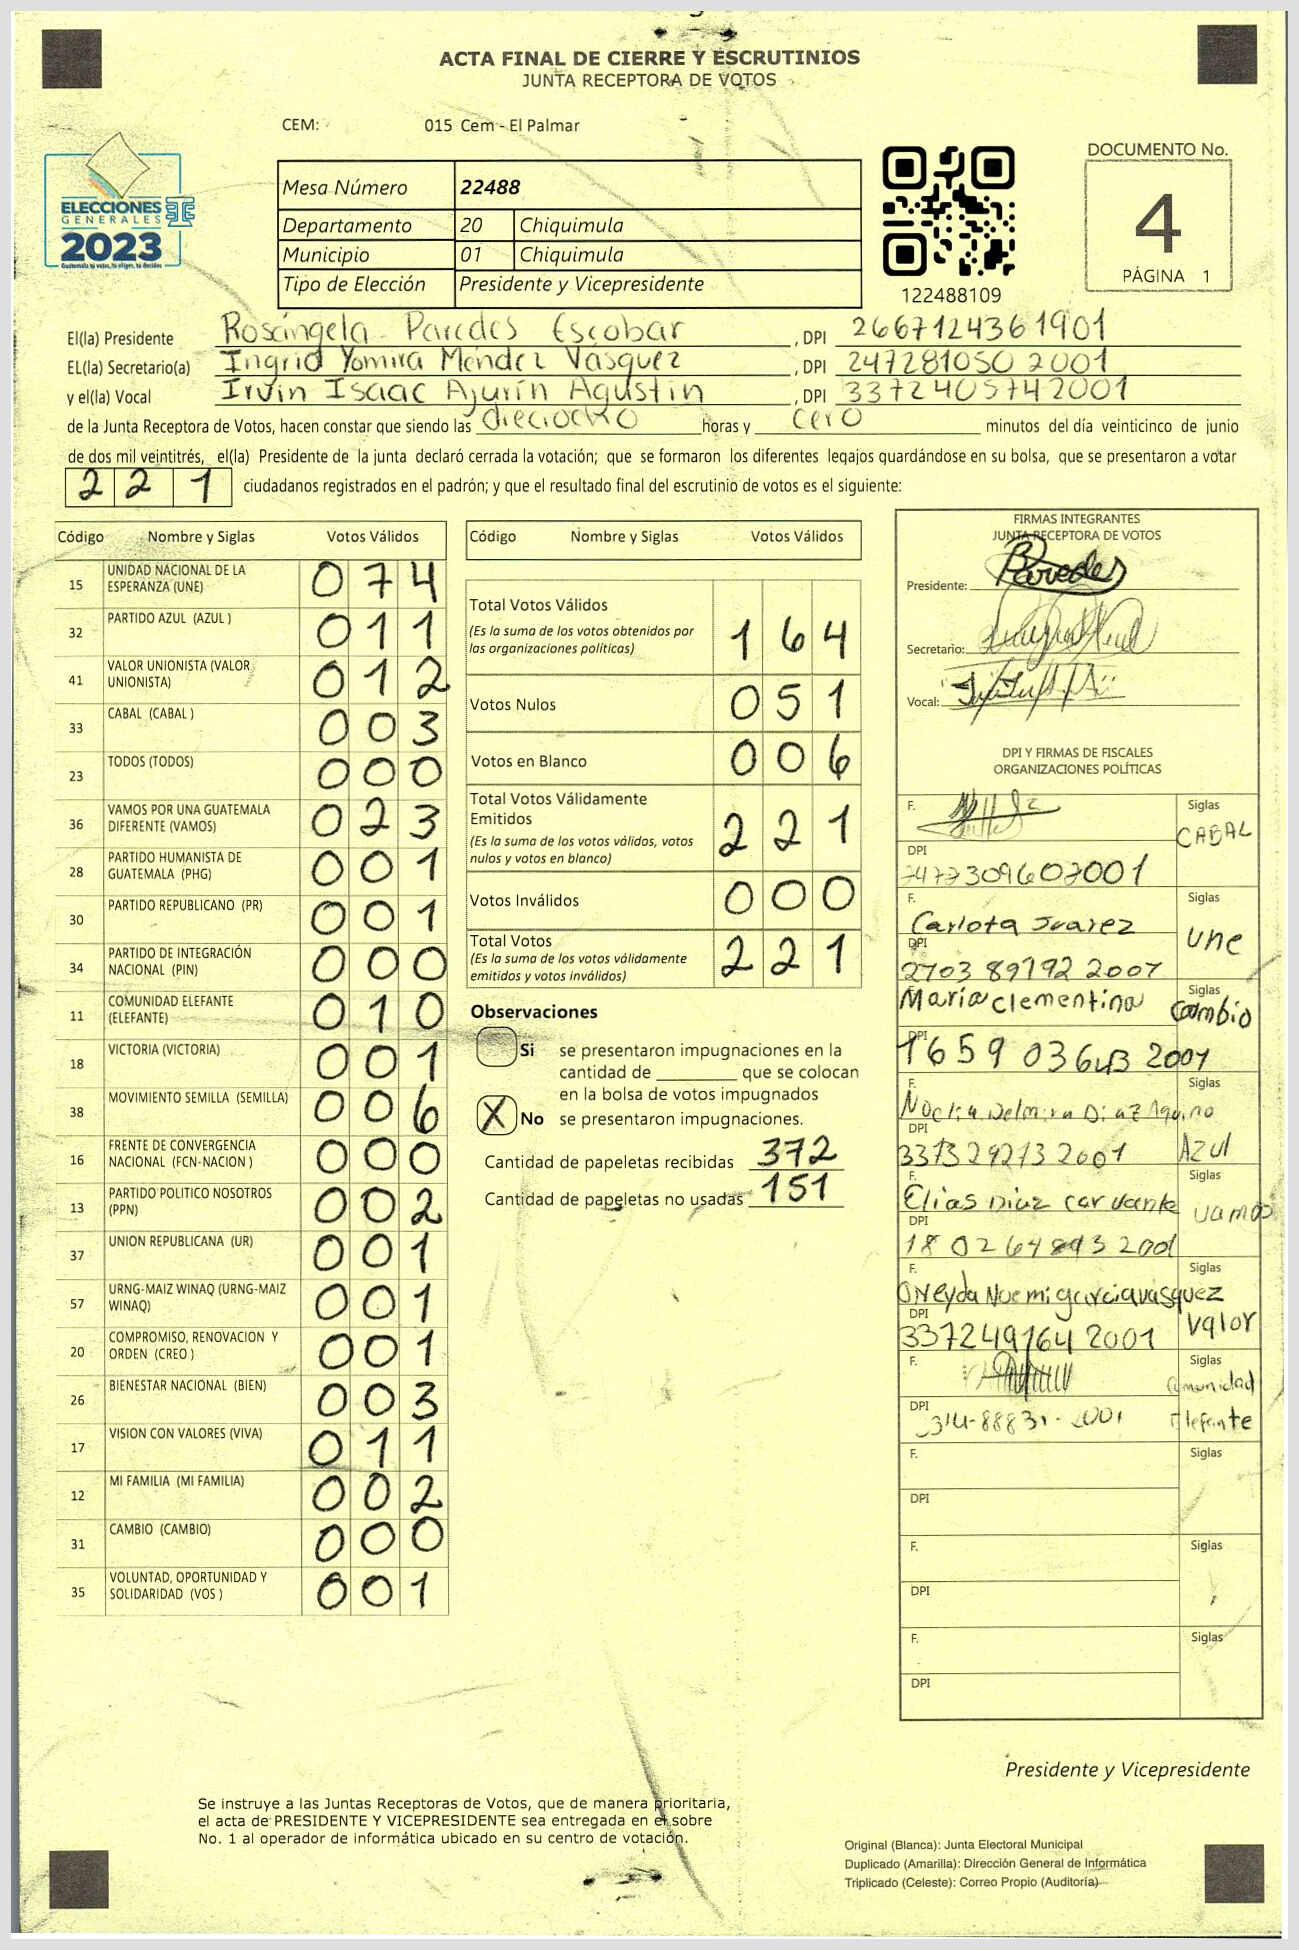 ACTA FINAL DE CIERRE Y ESCRUTINIOS
JUNTA RECEPTORA DE VOTOS
CEM: 015 Cem - El Palmar
ELECCIONES
GENERALES
2023
Guatemala tu votas, tu eliges, tu decides
Mesa Número 22488
Departamento 20 Chiquimula
Municipio 01 Chiquimula
Tipo de Elección Presidente y Vicepresidente
122488109
DOCUMENTO No.
4
PÁGINA 1
El(la) Presidente Rosángela Paredes Escobar , DPI 2667124361901
EL(la) Secretario(a) Ingrid Yomira Mendez Vásquez , DPI 247281050 2001
y el(la) Vocal Irvin Isaac Ajurín Agustin , DPI 3372405742001
de la Junta Receptora de Votos, hacen constar que siendo las dieciocho horas y cero minutos del día veinticinco de junio
de dos mil veintitrés, el(la) Presidente de la junta declaró cerrada la votación; que se formaron los diferentes legajos guardándose en su bolsa, que se presentaron a votar
221 ciudadanos registrados en el padrón; y que el resultado final del escrutinio de votos es el siguiente:
Código Nombre y Siglas Votos Válidos
15 UNIDAD NACIONAL DE LA ESPERANZA (UNE) 074
32 PARTIDO AZUL (AZUL ) 011
41 VALOR UNIONISTA (VALOR UNIONISTA) 012
33 CABAL (CABAL ) 003
23 TODOS (TODOS) 000
36 VAMOS POR UNA GUATEMALA DIFERENTE (VAMOS) 023
28 PARTIDO HUMANISTA DE GUATEMALA (PHG) 001
30 PARTIDO REPUBLICANO (PR) 001
34 PARTIDO DE INTEGRACIÓN NACIONAL (PIN) 000
11 COMUNIDAD ELEFANTE (ELEFANTE) 010
18 VICTORIA (VICTORIA) 001
38 MOVIMIENTO SEMILLA (SEMILLA) 006
16 FRENTE DE CONVERGENCIA NACIONAL (FCN-NACION ) 000
13 PARTIDO POLITICO NOSOTROS (PPN) 002
37 UNION REPUBLICANA (UR) 001
57 URNG-MAIZ WINAQ (URNG-MAIZ WINAQ) 001
20 COMPROMISO, RENOVACION Y ORDEN (CREO ) 001
26 BIENESTAR NACIONAL (BIEN) 003
17 VISION CON VALORES (VIVA) 011
12 MI FAMILIA (MI FAMILIA) 002
31 CAMBIO (CAMBIO) 000
35 VOLUNTAD, OPORTUNIDAD Y SOLIDARIDAD (VOS ) 001
Código Nombre y Siglas Votos Válidos
Total Votos Válidos 164
(Es la suma de los votos obtenidos por las organizaciones políticas)
Votos Nulos 051
Votos en Blanco 006
Total Votos Válidamente Emitidos 221
(Es la suma de los votos válidos, votos nulos y votos en blanco)
Votos Inválidos 000
Total Votos 221
(Es la suma de los votos válidamente emitidos y votos inválidos)
Observaciones
Si se presentaron impugnaciones en la
cantidad de ________ que se colocan
en la bolsa de votos impugnados
X No se presentaron impugnaciones.
Cantidad de papeletas recibidas 372
Cantidad de papeletas no usadas 151
FIRMAS INTEGRANTES
JUNTA RECEPTORA DE VOTOS
Presidente: Paredes
Secretario:
Vocal:
DPI Y FIRMAS DE FISCALES
ORGANIZACIONES POLÍTICAS
F. Siglas CABAL
DPI
F. Carlota Juarez Siglas une
DPI 2703 89792 2007
María Clementina Siglas Cambio
DPI
F. Siglas Azul
DPI 331329273 2001
F. Elias Diaz Siglas vamos
DPI
F. Oneyda Noemi garcia vasquez Siglas valor
DPI 337249164 2001
F. Siglas Comunidad Elefante
DPI
F. Siglas
DPI
F. Siglas
DPI
F. Siglas
DPI
Presidente y Vicepresidente
Se instruye a las Juntas Receptoras de Votos, que de manera prioritaria,
el acta de PRESIDENTE Y VICEPRESIDENTE sea entregada en el sobre
No. 1 al operador de informática ubicado en su centro de votación.
Original (Blanca): Junta Electoral Municipal
Duplicado (Amarilla): Dirección General de Informática
Triplicado (Celeste): Correo Propio (Auditoría)